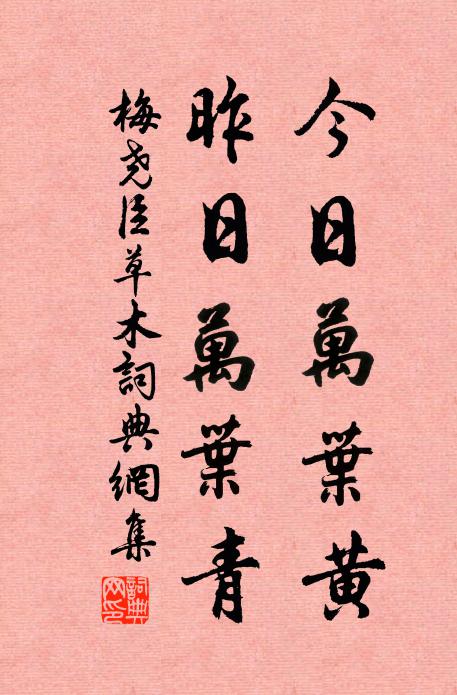 今日萬葉黄
昨日萬葉青
梅尧臣草木詞典網集
詞典網印